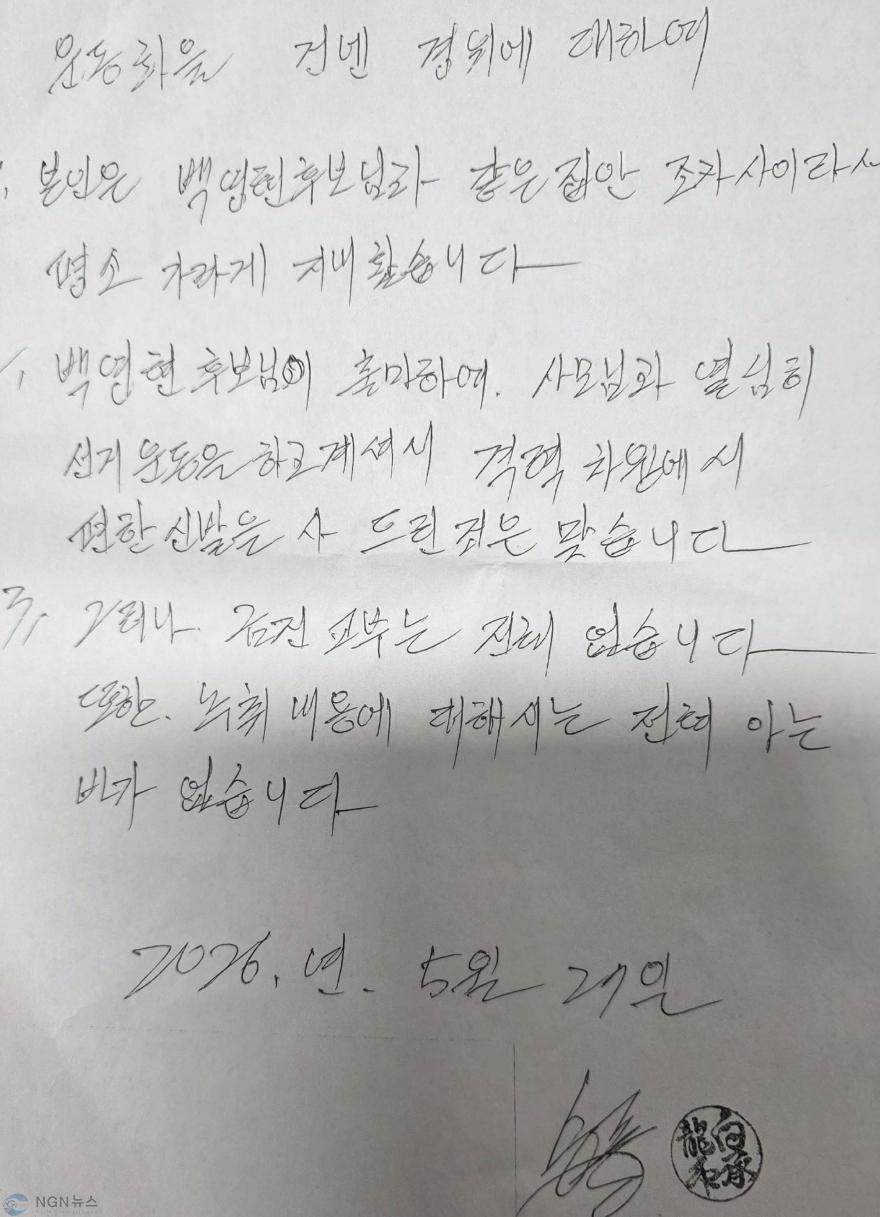 운동화을 건넨 경위에 대하여
1, 본인은 백영현후보님과 같은집안 조카사이라서
평소 가깝게 지내 왔습니다
1, 백영현후보님이 출마하여. 사모님과 열심히
선거운동을 하고계셔서 격력 차원에서
편한신발을 사 드린적은 맞습니다
3, 그러나 금전 교부는 전혀 없습니다
또한. 녹취 내용에 대해서는 전혀 아는
바가 없습니다
2026. 년. 5월 27일
NGN뉴스